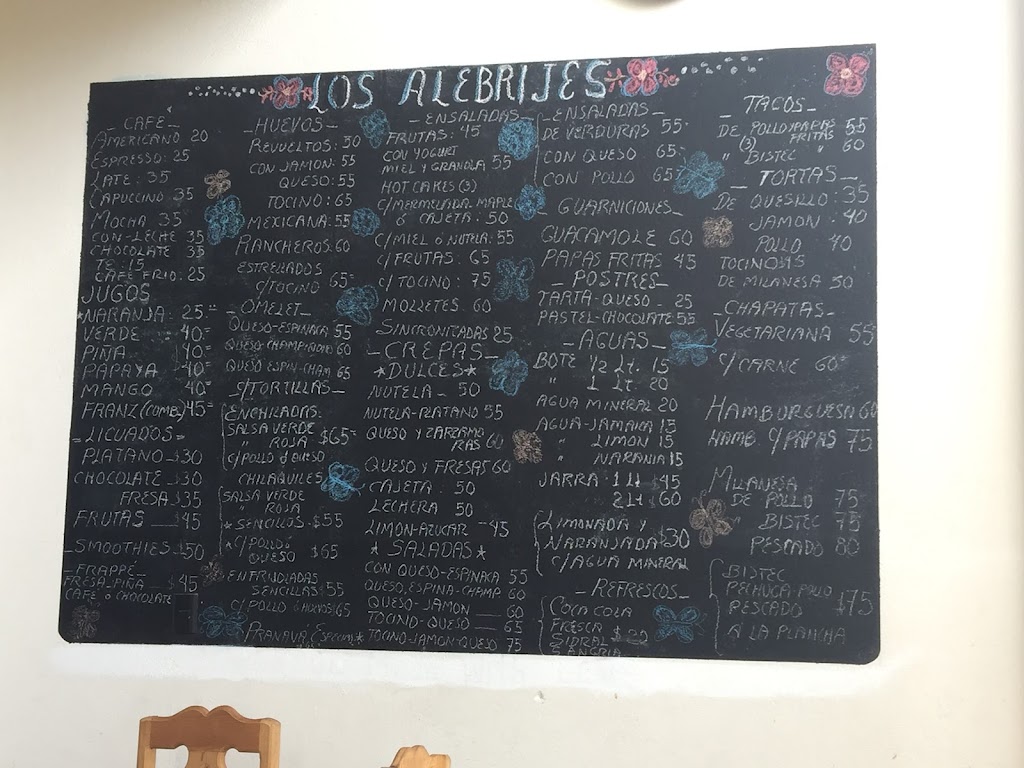 LOS ALEBRIJES
- CAFE -
AMERICANO 20
ESPRESSO: 25
LATE: 35
CAPUCCINO 35
MOCHA 35
CON-LECHE 35
CHOCOLATE 35
TE 15
CAFE FRIO: 25
JUGOS
*NARANJA: 25=
VERDE 40=
PIÑA 40=
PAPAYA 40=
MANGO 40=
FRANZ (COMB) 45=
=LICUADOS=
PLATANO $30
CHOCOLATE $30
FRESA $35
FRUTAS $45
-SMOOTHIES $50
-FRAPPE-
FRESA-PIÑA $45
CAFE O CHOCOLATE
-HUEVOS-
REVUELTOS: 50
CON JAMON: 55
QUESO: 55
TOCINO: 65
MEXICANA: 55
RANCHEROS: 60
ESTRELLADOS
C/TOCINO 65=
-OMELET-
QUESO-ESPINACA 55
QUESO-CHAMPIÑONS 60
QUESO ESPIN-CHAM 65
C/TORTILLAS-
ENCHILADAS:
SALSA VERDE
" ROJA $65=
C/POLLO O QUESO
CHILAQUILES
SALSA VERDE
" ROJA
* SENCILLOS $55
* C/POLLO
QUESO $65
ENFRIJOLADAS
SENCILLAS $55
C/POLLO O HUEVOS $65
PRANAVA: ESPECIAL*
- ENSALADAS-
FRUTAS: 45
CON YOGURT
MIEL Y GRANOLA 55
HOT CAKES (3)
C/MERMELADA, MAPLE
O CAJETA: 50
C/MIEL O NUTELA: 55
C/FRUTAS: 65
C/TOCINO: 75
MOLLETES 60
SINCRONIZADAS 25
-CREPAS-
*DULCES*
NUTELA - 50
NUTELA-PLATANO 55
QUESO Y ZARZAMO
RAS 60
QUESO Y FRESAS 60
CAJETA: 50
LECHERA 50
LIMON-AZUCAR - 45
* SALADAS *
CON QUESO-ESPINACA 55
QUESO, ESPINA-CHAMP 60
QUESO-JAMON 60
TOCINO-QUESO 65
TOCINO-JAMON-QUESO 75
-ENSALADAS-
DE VERDURAS 55
CON QUESO 65
CON POLLO 65
- GUARNICIONES-
GUACAMOLE 60
PAPAS FRITAS 45
-POSTRES-
TARTA-QUESO - 25
PASTEL-CHOCOLATE 55
-AGUAS-
BOTE 1/2 Lt. 15
" 1 Lt. 20
AGUA MINERAL 20
AGUA-JAMAICA 15
" LIMON 15
" NARANJA 15
JARRA: 1 Lt $45
2 Lt $60
LIMONADA Y
NARANJADA $30
C/AGUA MINERAL
-REFRESCOS-
COCA COLA
FRESCA $20
SIDRAL
SANGRIA
TACOS-
DE POLLO Y PAPAS FRITAS 55
(3) " BISTEC " 60
- TORTAS-
DE QUESILLO: 35
JAMON: 40
POLLO 40
TOCINO 45
DE MILANESA 50
-CHAPATAS-
VEGETARIANA 55
C/CARNE 60=
HAMBURGUESA 60
HAMB C/PAPAS 75
MILANESA
DE POLLO 75
BISTEC 75
PESCADO 80
BISTEC
PECHUGA POLLO
PESCADO $75
A LA PLANCHA